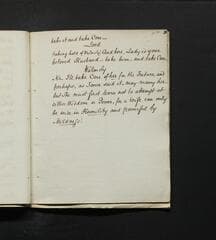 take it and take Care —
Lord
taking hold of Melody And here, Lady is your
beloved Husband — take him, and take Care.
Melody
Ah. I'll take Care of her for the Future, and
perhaps, as Some said it, may marry her.
but She must first learn not to attempt at
either Wisdom or Power, for a Wife can only
be wise in Humility and powerful by
Mildness!